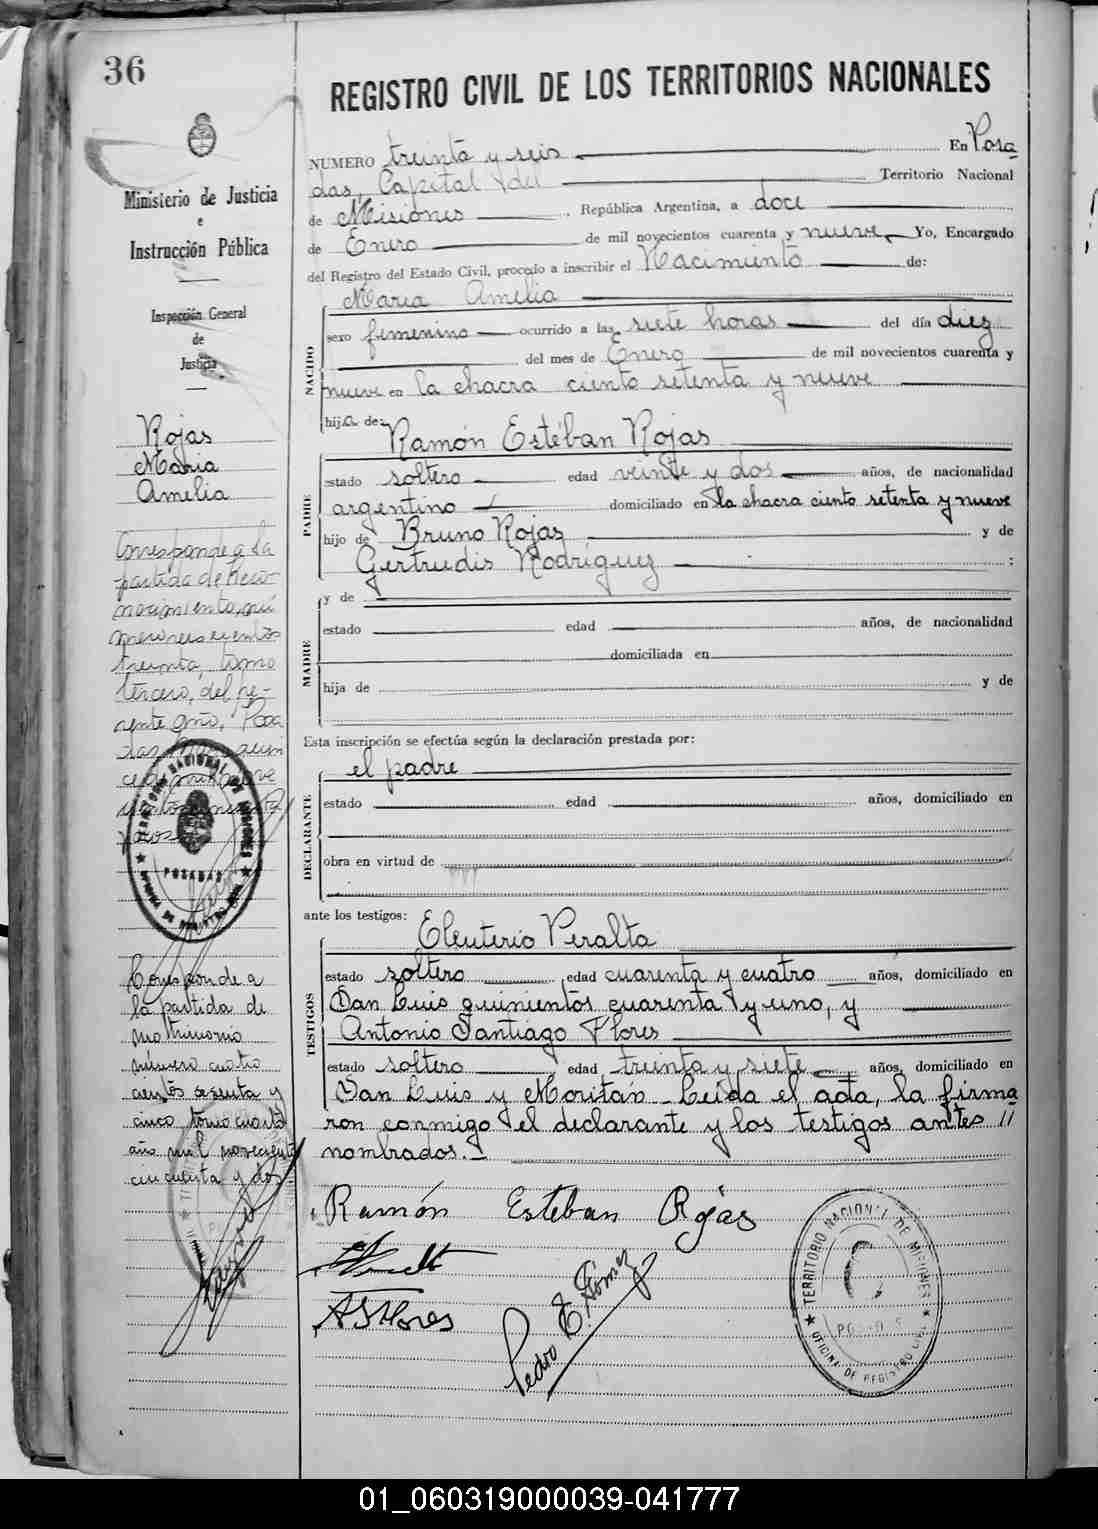 36
REGISTRO CIVIL DE LOS TERRITORIOS NACIONALES
Ministerio de Justicia
e
Instrucción Pública
Inspección General
de
Justicia
Rojas
Maria
Amelia
Corresponde a la
partida de Reco-
nocimiento nú
mero seiscientos
treinta, tomo
tercero, del pre-
sente año. Posa
das
POSADAS
Corresponde a
la partida de
matrimonio
número cuatro
cientos sesenta y
cinco tomo cuarto
año mil novecientos
cincuenta y dos
NUMERO treinta y seis En Posa
das, Capital del Territorio Nacional
de Misiones República Argentina, a doce
de Enero de mil novecientos cuarenta y nueve. Yo, Encargado
del Registro del Estado Civil, procedo a inscribir el Nacimiento de:
Maria Amelia
NACIDO
sexo femenino ocurrido a las siete horas del día diez
del mes de Enero de mil novecientos cuarenta y
nueve en la chacra ciento setenta y nueve
hija de:
Ramón Estéban Rojas
PADRE
estado soltero edad veinte y dos años, de nacionalidad
argentino domiciliado en la chacra ciento setenta y nueve
hijo de Bruno Rojas y de
Gertrudis Rodríguez :
MADRE
y de
estado edad años, de nacionalidad
domiciliada en
hija de y de
Esta inscripción se efectúa según la declaración prestada por:
el padre
DECLARANTE
estado edad años, domiciliado en
obra en virtud de
ante los testigos:
Eleuterio Peralta
TESTIGOS
estado soltero edad cuarenta y cuatro años, domiciliado en
San Luis quinientos cuarenta y uno, y
Antonio Santiago Flores
estado soltero edad treinta y siete años, domiciliado en
San Luis y Moritán. Leída el acta, la firma
ron conmigo el declarante y los testigos antes //
nombrados.-
Ramón Esteban Rojas
ASFlores
Pedro E. Gómez
TERRITORIO NACIONAL DE MISIONES
OFICINA DE REGISTRO CIVIL
01_060319000039-041777